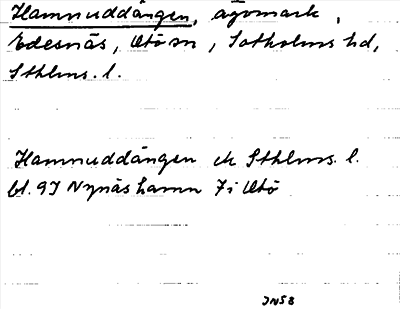 Hamnuddängen, ägomark,
Edesnäs, Utö sn, Sotholms hd,
Sthlms. l.
Hamnuddängen ek Sthlms. l.
bl. 9J Nynäshamn 7i Utö
JN58